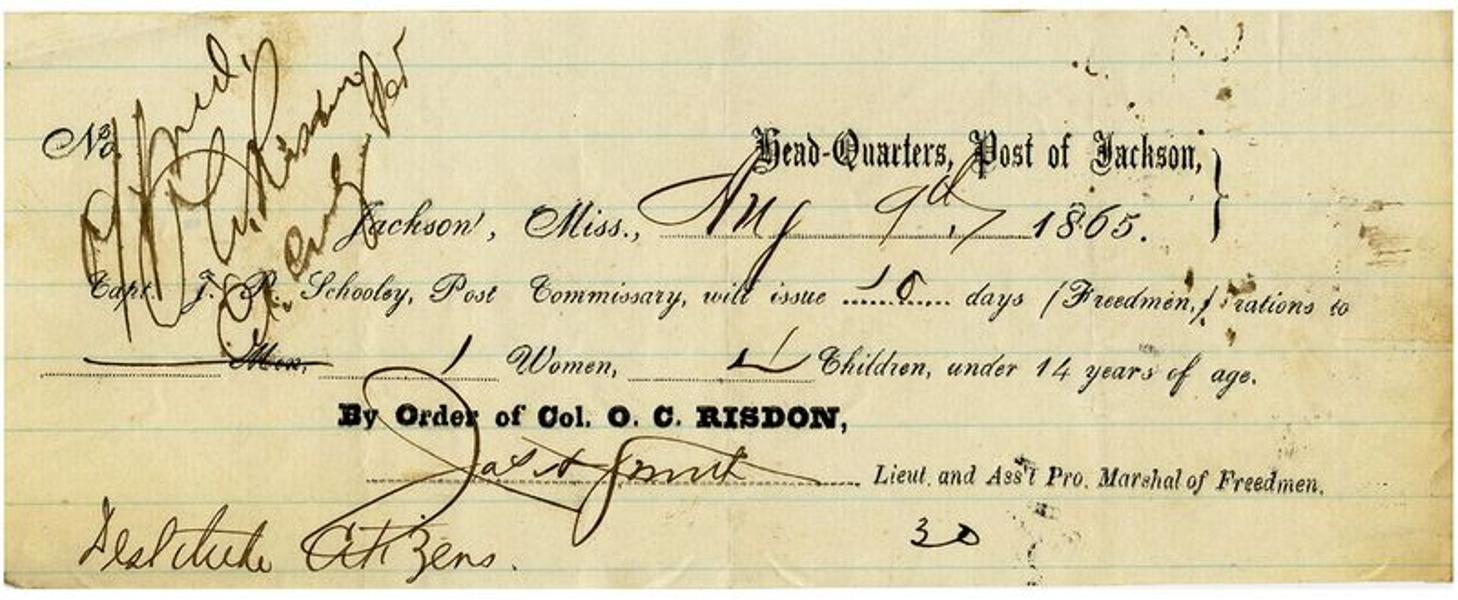 No.
Head-Quarters, Post of Jackson,
Jackson, Miss., Aug 9th 1865.
Capt. J. R. Schooley, Post Commissary, will issue 10 days (Freedmen,) rations to
Men, 1 Women, 4 Children, under 14 years of age.
By Order of Col. O. C. RISDON,
Jas A Smith Lieut. and Ass't Pro. Marshal of Freedmen.
30
Destitute Citizens.